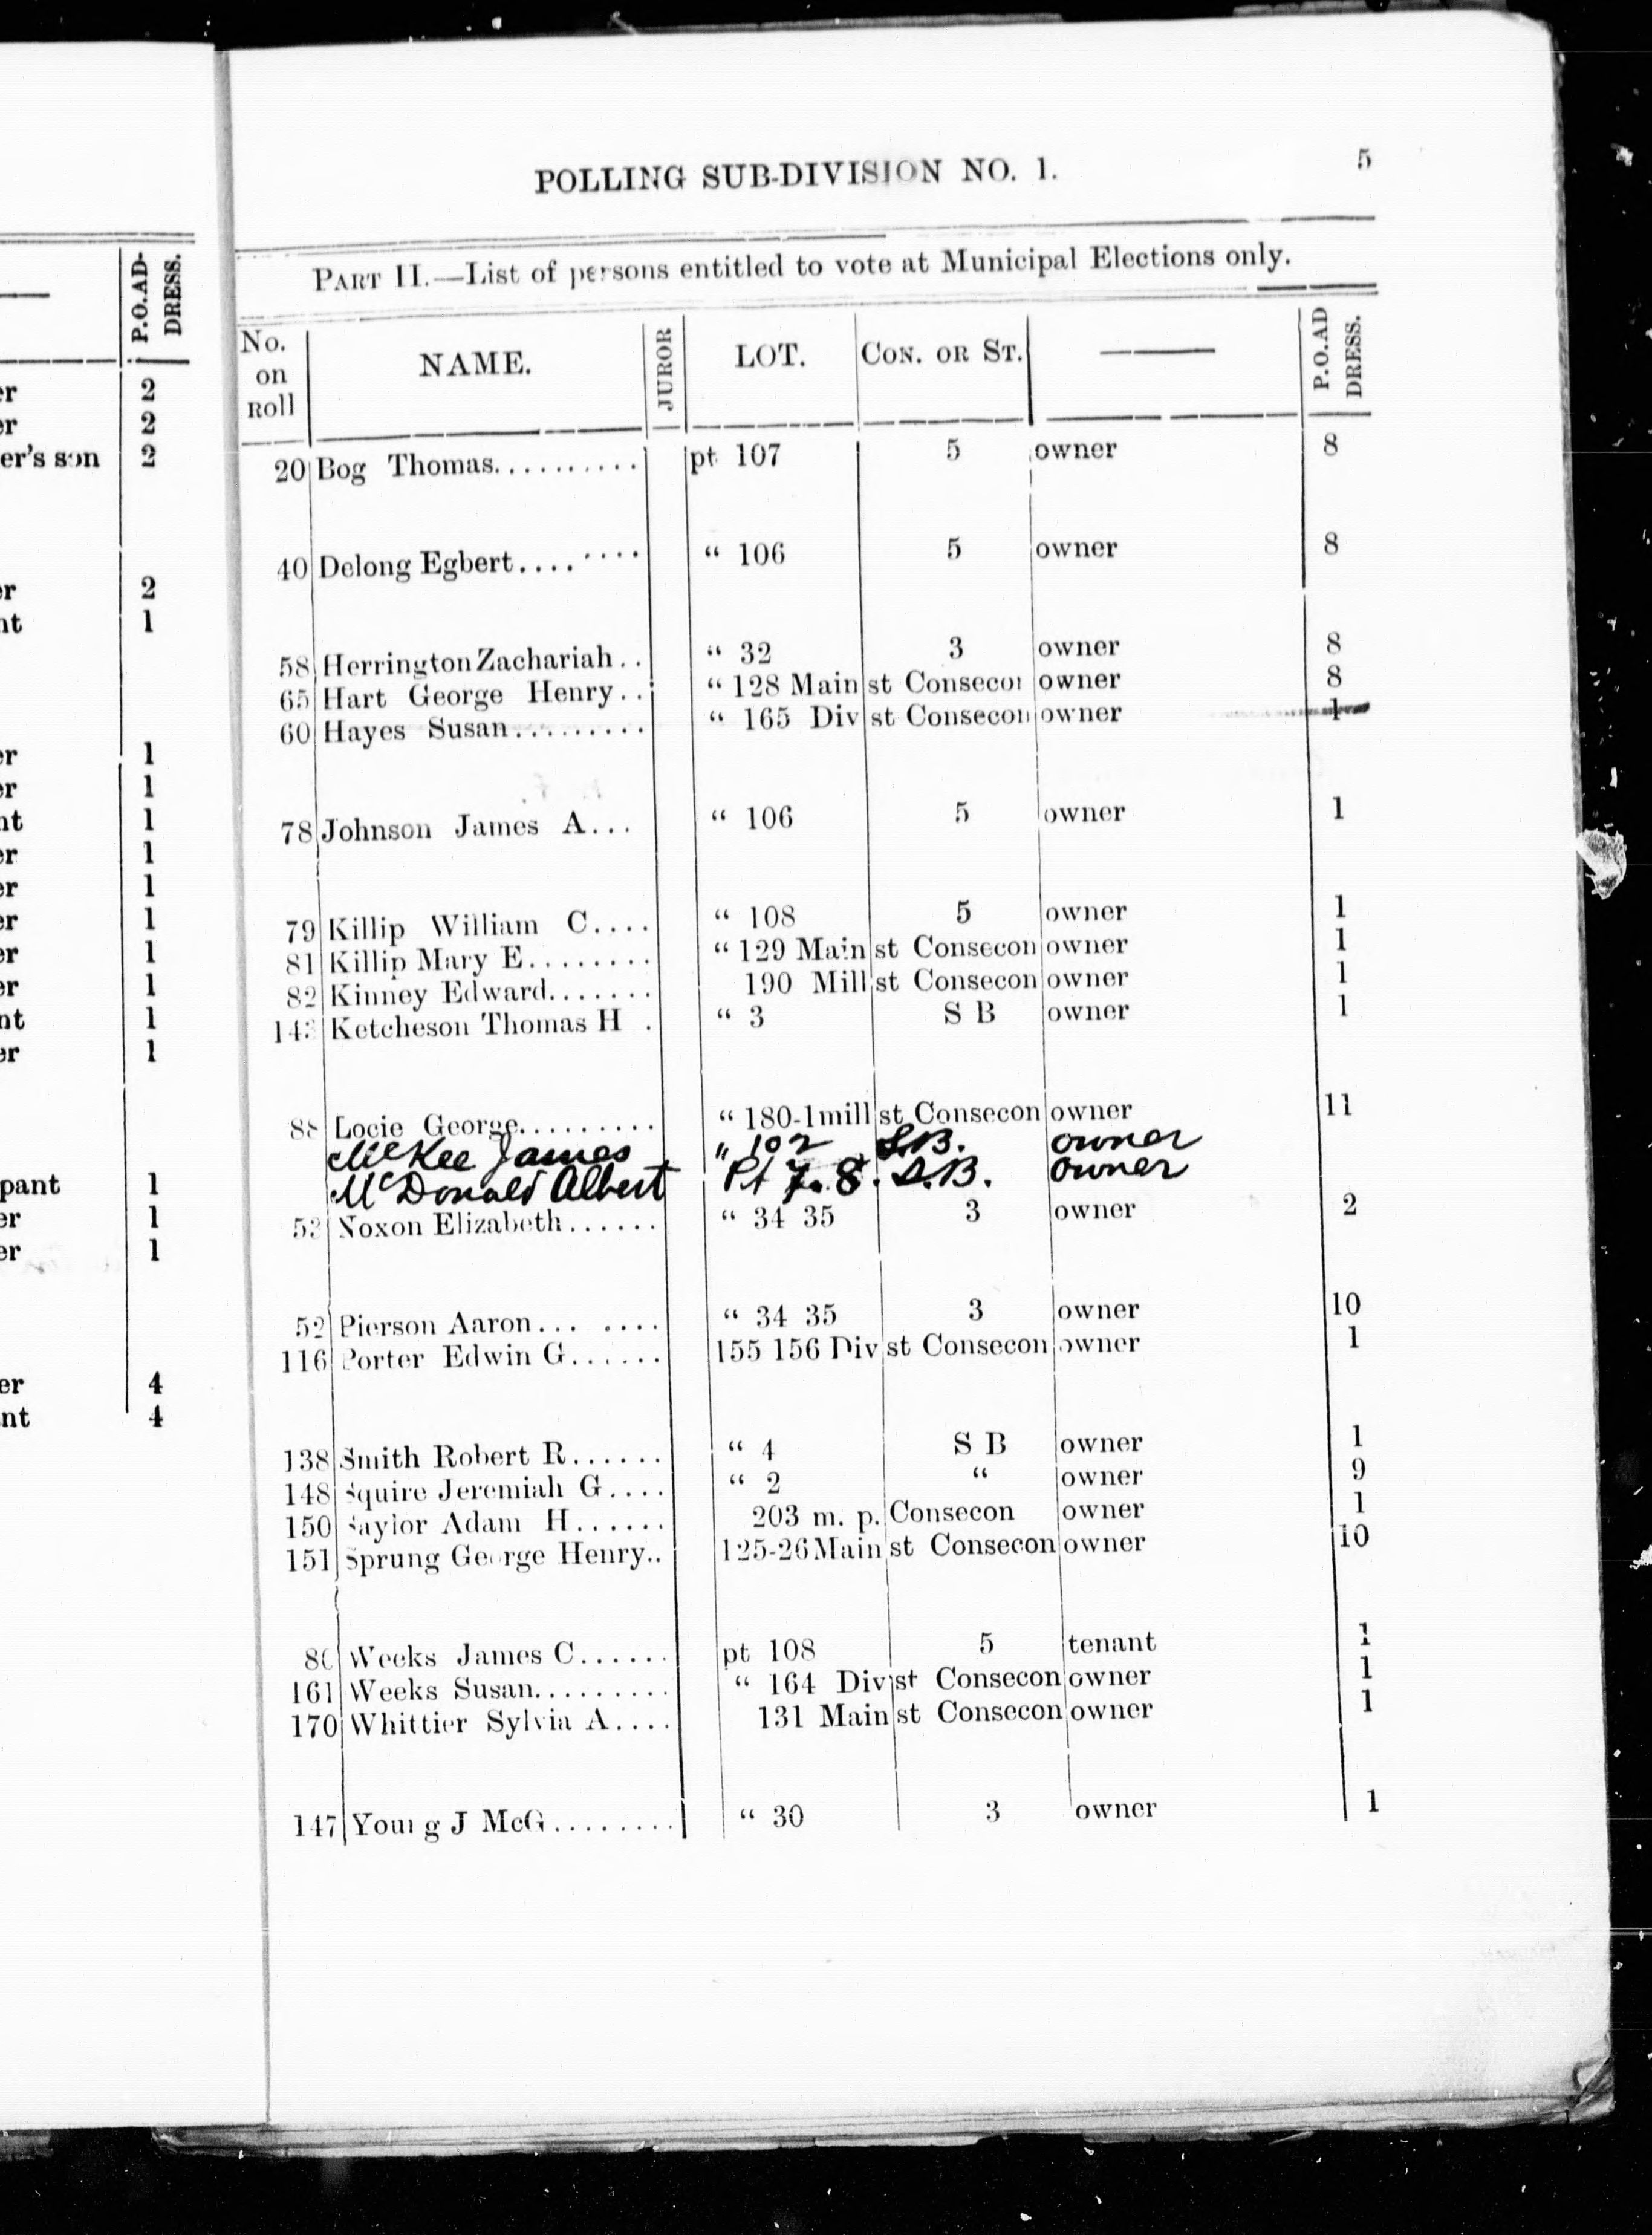 P.O.AD-
DRESS.
er 2
er 2
er's son 2
er 2
nt 1
er 1
er 1
nt 1
er 1
er 1
er 1
er 1
er 1
nt 1
er 1
pant 1
er 1
er 1
er 4
nt 4
POLLING SUB-DIVISION NO. 1. 5
PART II.—List of persons entitled to vote at Municipal Elections only.
No. on Roll NAME. JUROR LOT. CON. OR ST. P.O.AD DRESS.
20 Bog Thomas.......... pt 107 5 owner 8
40 Delong Egbert........ “ 106 5 owner 8
58 Herrington Zachariah.. “ 32 3 owner 8
65 Hart George Henry.. “ 128 Main st Consecon owner 8
60 Hayes Susan......... “ 165 Div st Consecon owner 1
78 Johnson James A... “ 106 5 owner 1
79 Killip William C.... “ 108 5 owner 1
81 Killip Mary E........ “ 129 Main st Consecon owner 1
82 Kinney Edward....... 190 Mill st Consecon owner 1
143 Ketcheson Thomas H . “ 3 S B owner 1
88 Locie George......... “ 180-1 mill st Consecon owner 11
McKee James " 102 S.B. owner
McDonald Albert Pt 7. 8. S.B. owner
53 Noxon Elizabeth...... “ 34 35 3 owner 2
52 Pierson Aaron... .... “ 34 35 3 owner 10
116 Porter Edwin G...... 155 156 Div st Consecon owner 1
138 Smith Robert R...... “ 4 S B owner 1
148 Squire Jeremiah G.... “ 2 “ owner 9
150 Saylor Adam H...... 203 m. p. Consecon owner 1
151 Sprung George Henry.. 125-26 Main st Consecon owner 10
80 Weeks James C...... pt 108 5 tenant 1
161 Weeks Susan......... “ 164 Div st Consecon owner 1
170 Whittier Sylvia A.... 131 Main st Consecon owner 1
147 Young J McG........ “ 30 3 owner 1